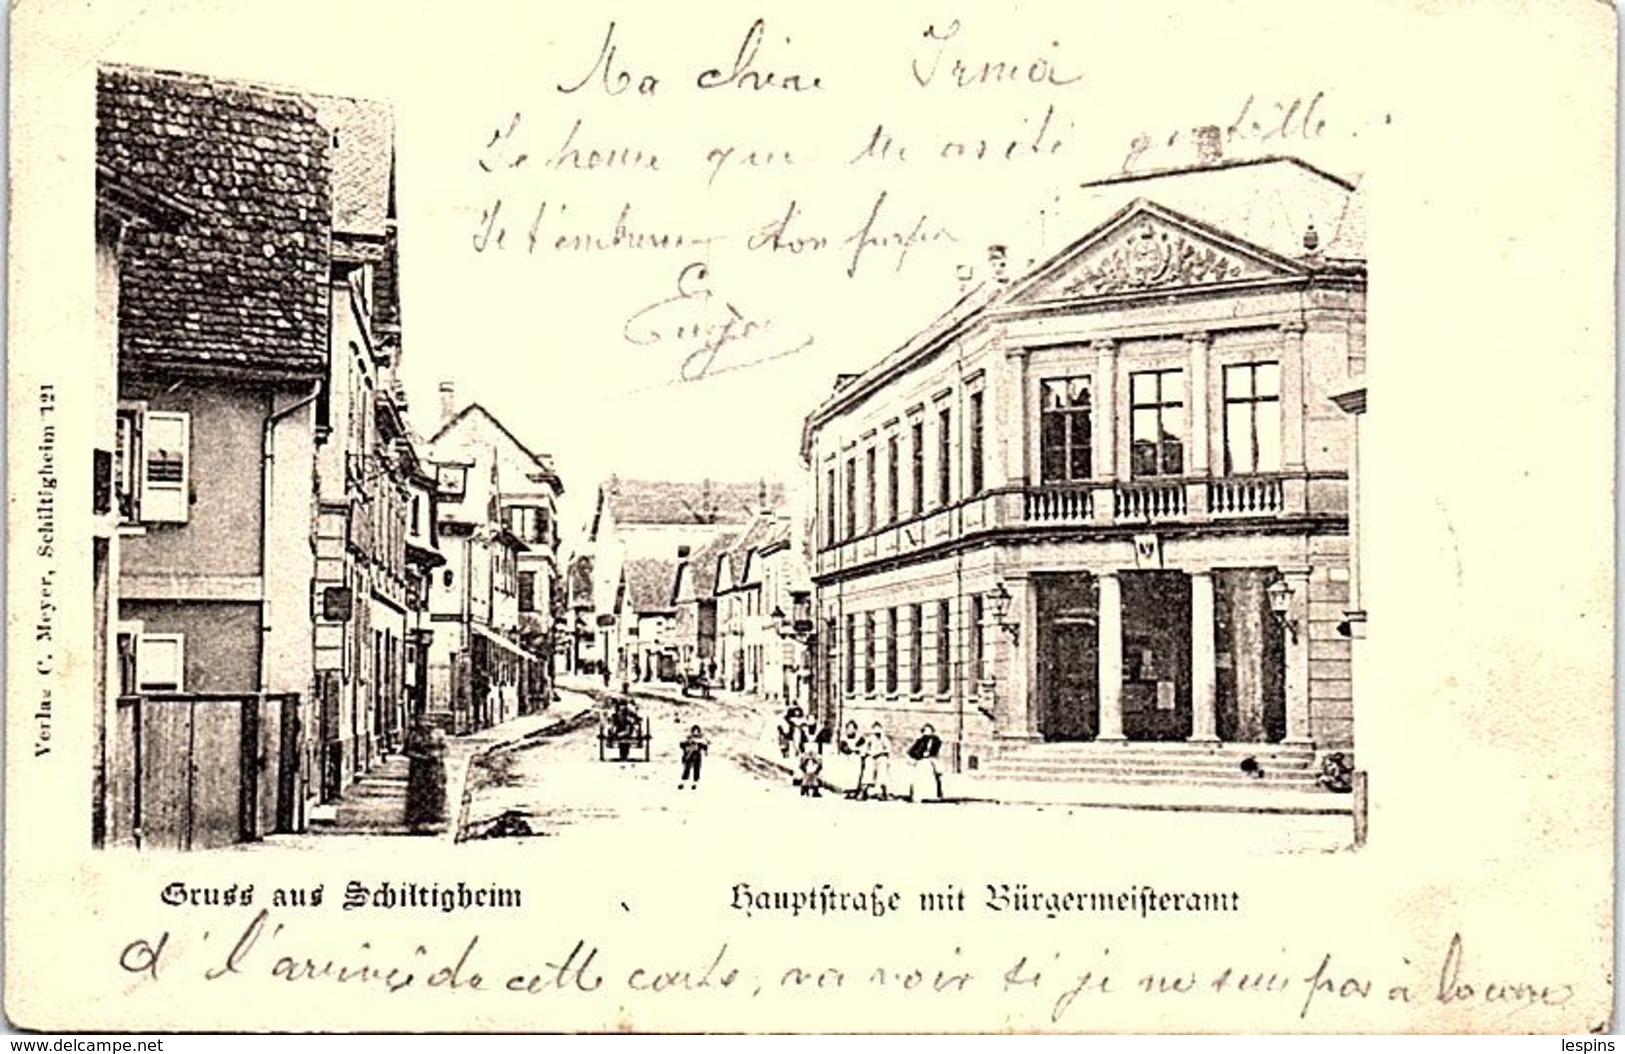 Ma chère Irma
Je t'embrasse ton papa
Verlag C. Meyer, Schiltigheim 121
Gruss aus Schiltigheim
Hauptstraße mit Bürgermeisteramt
A l'arrivée de cette carte, va voir si je ne suis pas à la
www.delcampe.net
lespins